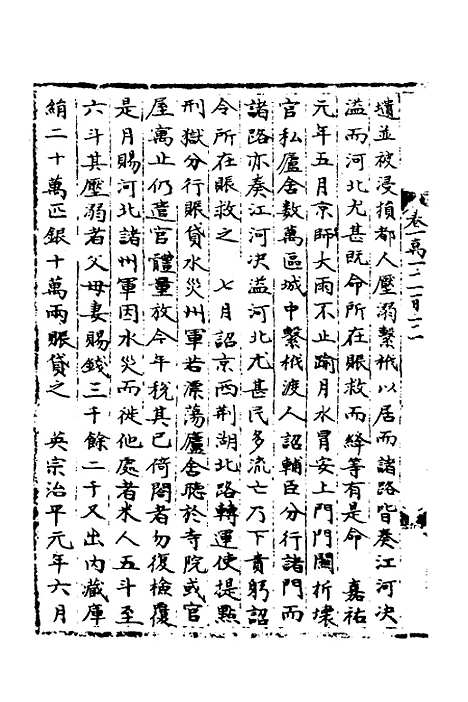 卷一萬一二百二
壝並被浸損都人壓溺繫栰以居而諸路皆奏江河決
溢而河北尤甚既命所在賑救而絳等有是命　嘉祐
元年五月京師大雨不止踰月水冒安上門門關折壊
官私廬舍數萬區城中繫栰渡人詔輔臣分行諸門而
諸路亦奏江河決溢河北尤甚民多流亡乃下責躬詔
令所在賑救之　七月詔京西荆湖北路轉運使提點
刑獄分行賑貸水災州軍若漂蕩廬舍聽於寺院或官
屋寓止仍遣官體量放今年稅其已倚閣者勿復檢覆
是月賜河北諸州軍因水災而徙他處者米人五斗至
六斗其壓溺者父母妻賜錢三千餘二千又出内藏庫
絹二十萬匹銀十萬兩賑貸之　英宗治平元年六月